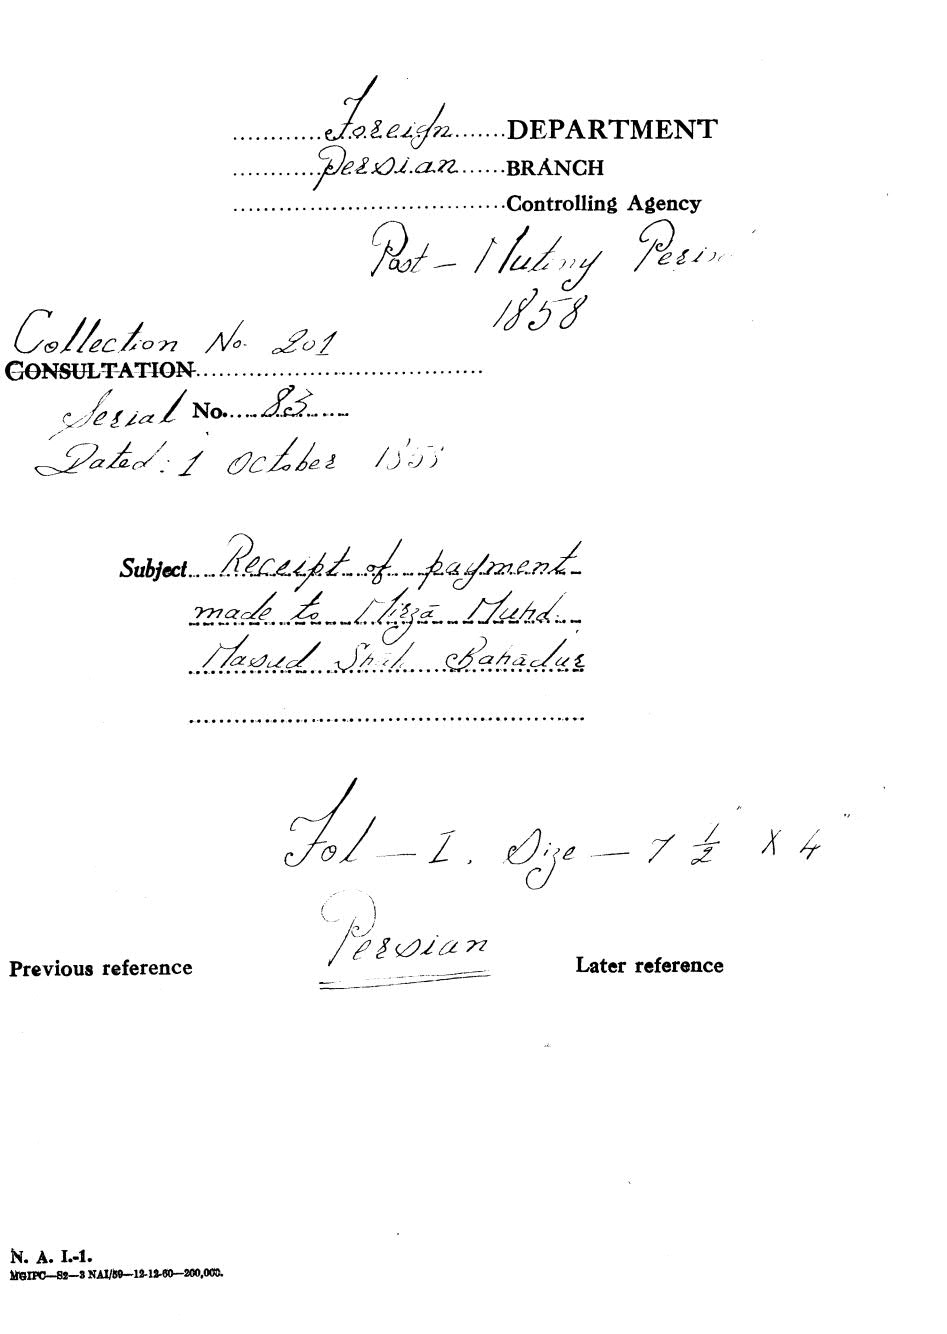 Foreign DEPARTMENT
Persian BRANCH
Controlling Agency
Post - Mutiny Period
1858
Collection No. 201
CONSULTATION
Serial No. 83
Dated: 1 October 1858
Subject Receipt of payment
made to Mirzā Muhd.
Masud Shah Bahādur
Fol - I. Size - 7 ½" X 4"
Persian
Previous reference
Later reference
N. A. I.-1.
MGIPC—S2—3 NAI/59—12-12-60—200,000.